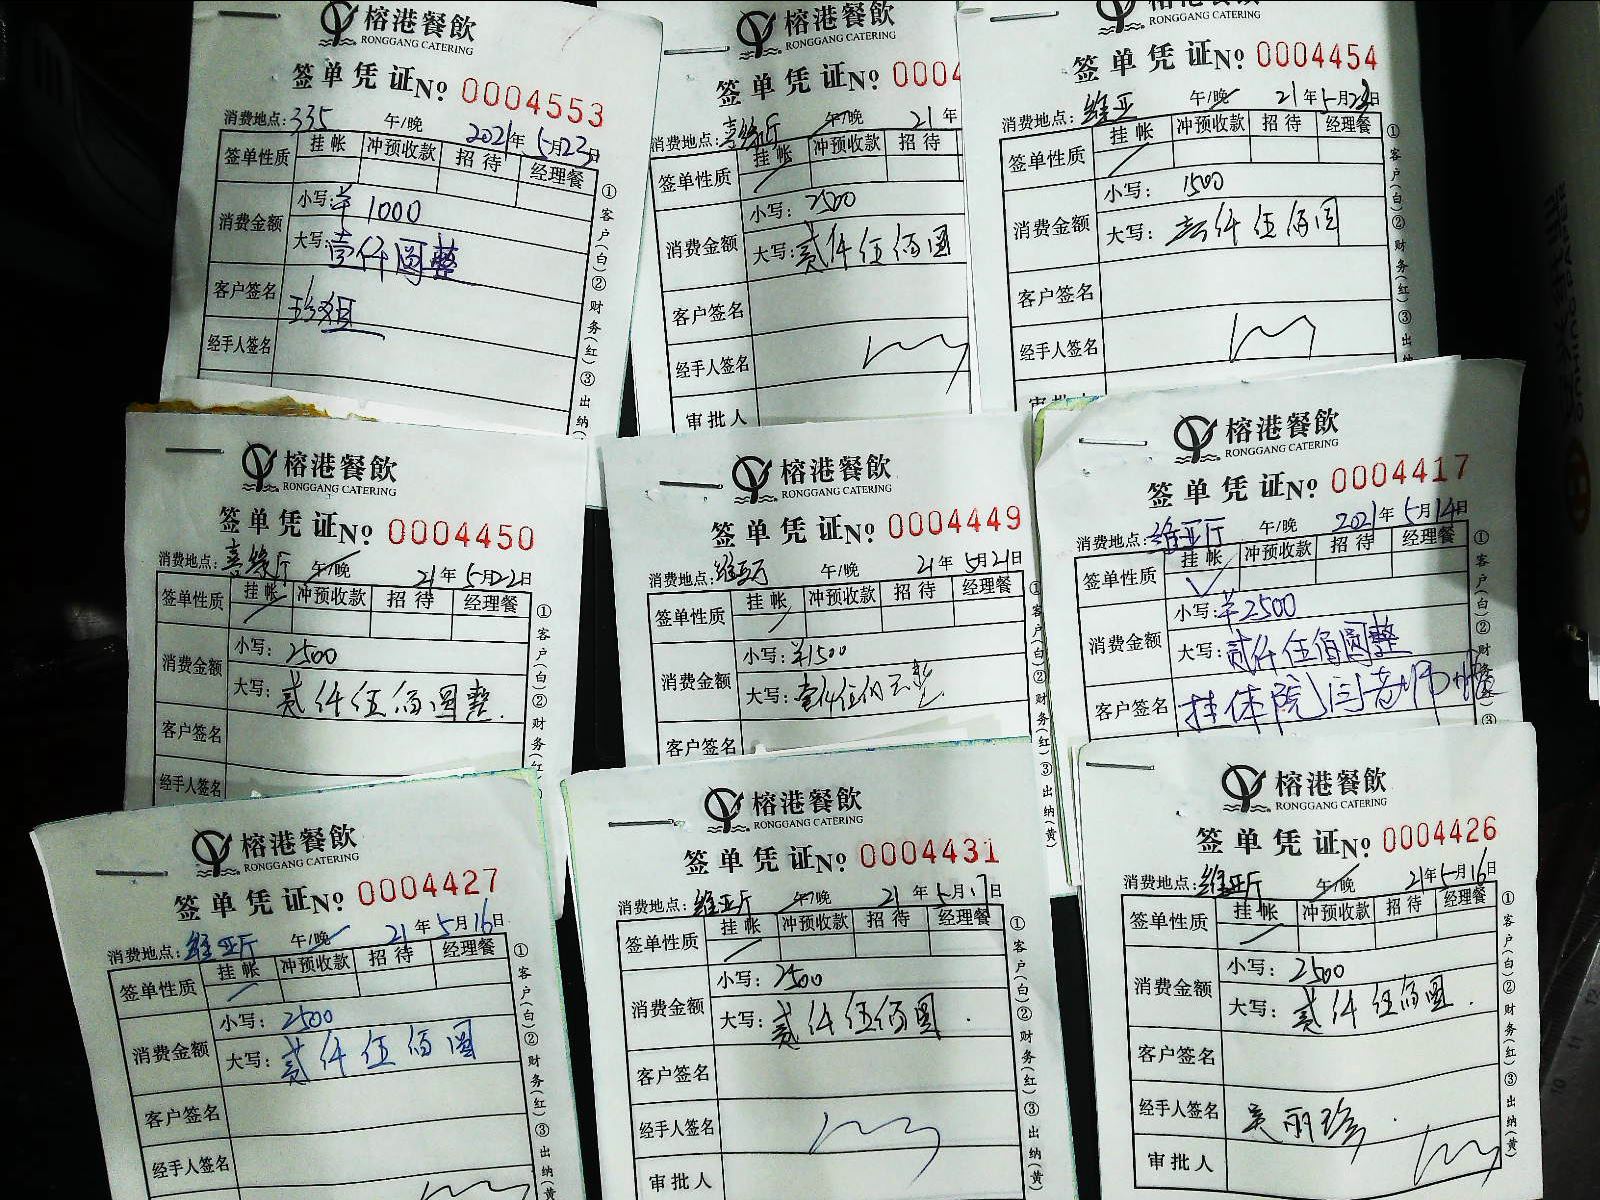 榕港餐飲
RONGGANG CATERING
签单凭证№ 0004553
消费地点: 335 午/晚 2021年5月23日
签单性质 挂帐 冲预收款 招待 经理餐
消费金额 小写: ¥1000
大写: 壹仟圆整
客户签名
经手人签名
①客户(白)②财务(红)③出纳(
榕港餐飲
RONGGANG CATERING
签单凭证№ 0004
消费地点: 喜缘厅 午/晚 21年
签单性质 挂帐 冲预收款 招待
消费金额 小写: 2500
大写: 贰仟伍佰圆
客户签名
经手人签名
审批人
榕港餐飲
RONGGANG CATERING
签单凭证№ 0004454
消费地点: 维亚 午/晚 21年5月23日
签单性质 挂帐 冲预收款 招待 经理餐
消费金额 小写: 1500
大写: 壹仟伍佰圆
客户签名
经手人签名
审批人
①客户(白)②财务(红)③出纳
榕港餐飲
RONGGANG CATERING
签单凭证№ 0004450
消费地点: 喜缘厅 午/晚 21年5月22日
签单性质 挂帐 冲预收款 招待 经理餐
消费金额 小写: 2500
大写: 贰仟伍佰圆整.
客户签名
经手人签名
①客户(白)②财务(红)
榕港餐飲
RONGGANG CATERING
签单凭证№ 0004449
消费地点: 维亚厅 午/晚 21年5月21日
签单性质 挂帐 冲预收款 招待 经理餐
消费金额 小写: ¥1500
大写: 壹仟伍佰元整
客户签名
①客户(白)②财务(红)③出纳(黄)
榕港餐飲
RONGGANG CATERING
签单凭证№ 0004417
消费地点: 维亚厅 午/晚 2021年5月14日
签单性质 挂帐 冲预收款 招待 经理餐
消费金额 小写: ¥2500
大写: 贰仟伍佰圆整
客户签名 挂体院闫老师帐
①客户(白)②财务(红)③
榕港餐飲
RONGGANG CATERING
签单凭证№ 0004427
消费地点: 维亚厅 午/晚 21年5月16日
签单性质 挂帐 冲预收款 招待 经理餐
消费金额 小写: 2500
大写: 贰仟伍佰圆
客户签名
经手人签名
①客户(白)②财务(红)③出纳
榕港餐飲
RONGGANG CATERING
签单凭证№ 0004431
消费地点: 维亚厅 午/晚 21年5月17日
签单性质 挂帐 冲预收款 招待 经理餐
消费金额 小写: 2500
大写: 贰仟伍佰圆.
客户签名
经手人签名
审批人
①客户(白)②财务(红)③出纳(黄)
榕港餐飲
RONGGANG CATERING
签单凭证№ 0004426
消费地点: 维亚厅 午/晚 21年5月16日
签单性质 挂帐 冲预收款 招待 经理餐
消费金额 小写: 2500
大写: 贰仟伍佰圆.
客户签名
经手人签名 吴丽珍.
审批人
①客户(白)②财务(红)③出纳(黄)